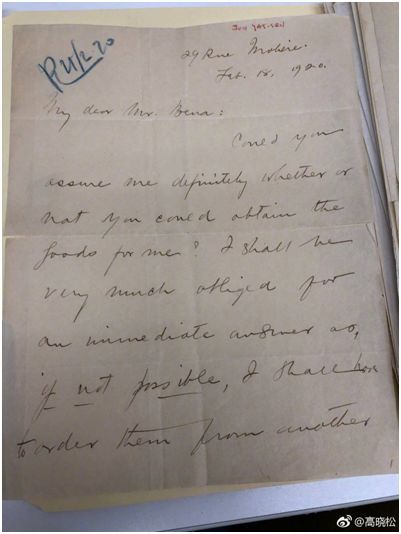 SUN YAT-SEN
R 21/2.20
29 Rue Molière.
Feb. 18, 1920.
My dear Mr. Bena:
Could you
assure me definitely whether or
not you could obtain the
goods for me? I shall be
very much obliged for
an immediate answer as,
if not possible, I shall have
to order them from another
@高晓松